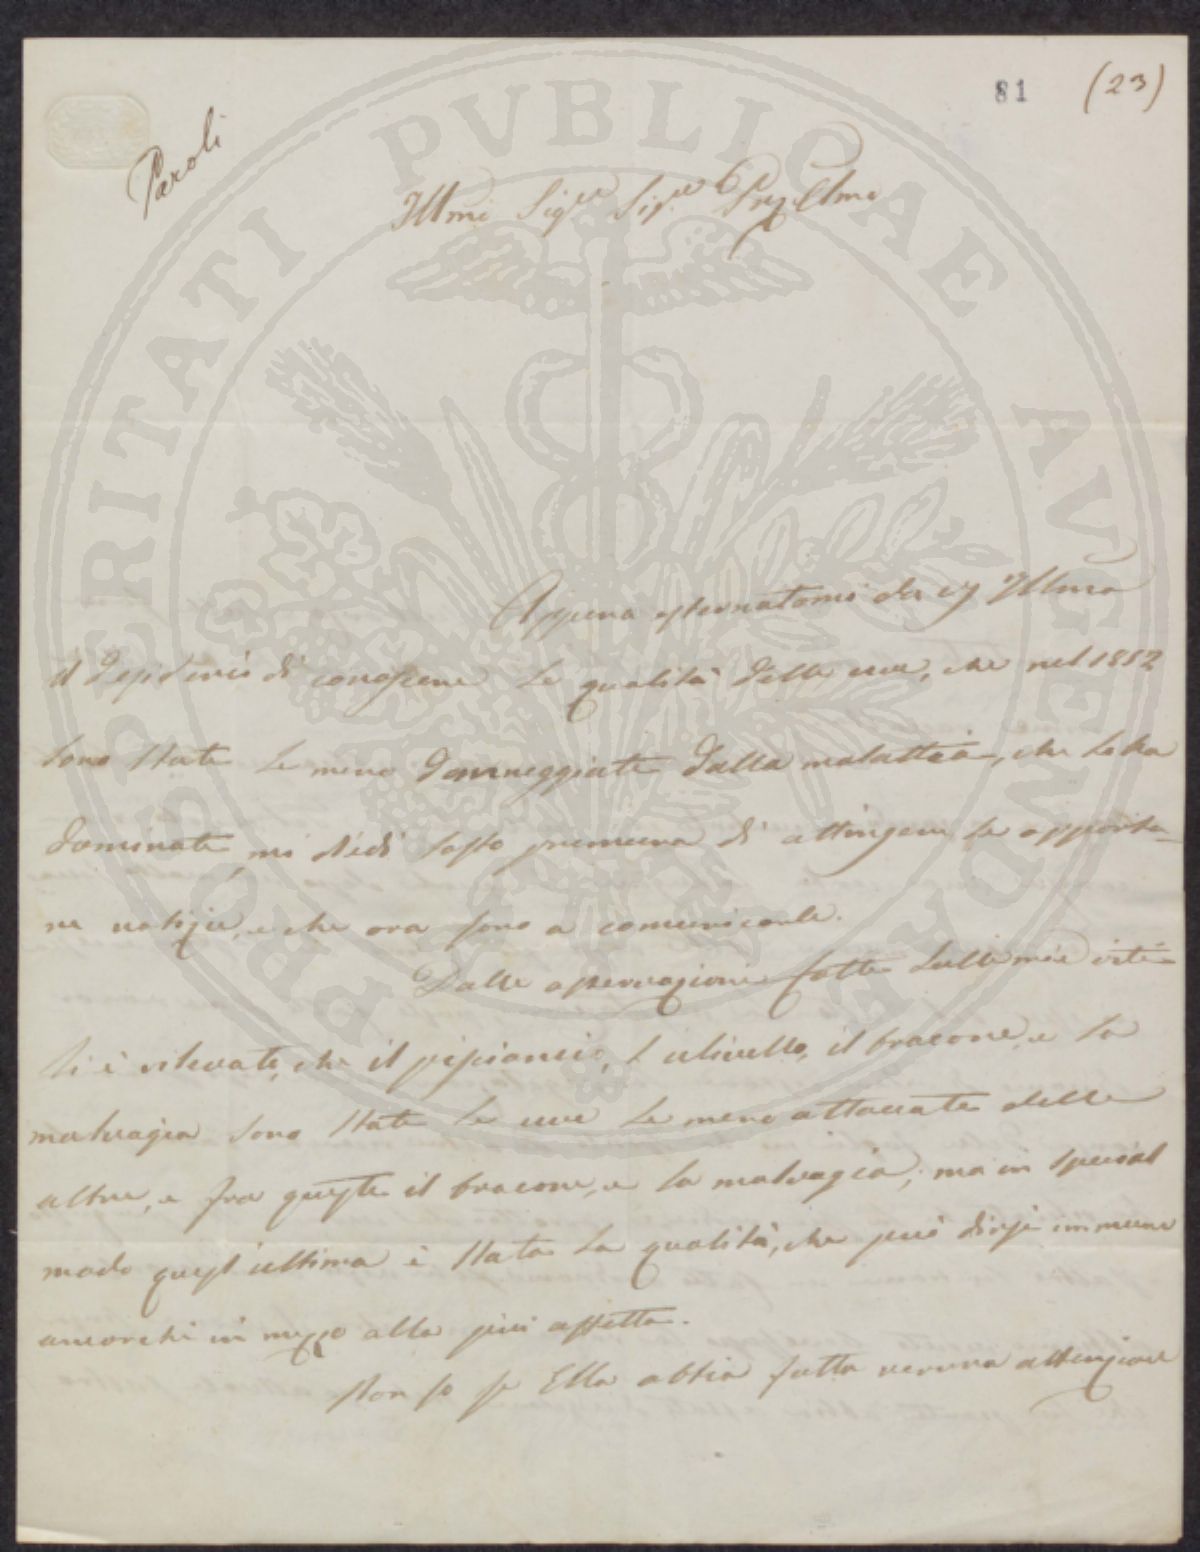 81 (23)
Paroli
Illmo Sigre Sigre
PROSPERITATI PVBLICAE AVGENDAE
Appena esternatomi da Illma
il desiderio di conoscere le qualità delle uve, che nel 1852
sono state le meno danneggiate dalla malattia, che le ha
dominate, mi diedi tosto premura di attingere le opportu-
ne notizie, e che ora sono a comunicarle.
Dalle osservazioni fatte sulle mie viti
si è rilevato, che il l'ulivello, il bracone, e la
malvagia sono state le uve le meno attaccate delle
altre, e fra queste il bracone, e la malvagia; ma in special
modo quest'ultima è stata la qualità, che può dirsi immune
ancorché in mezzo alla più affetta.
Non so se Ella abbia fatta veruna attenzione